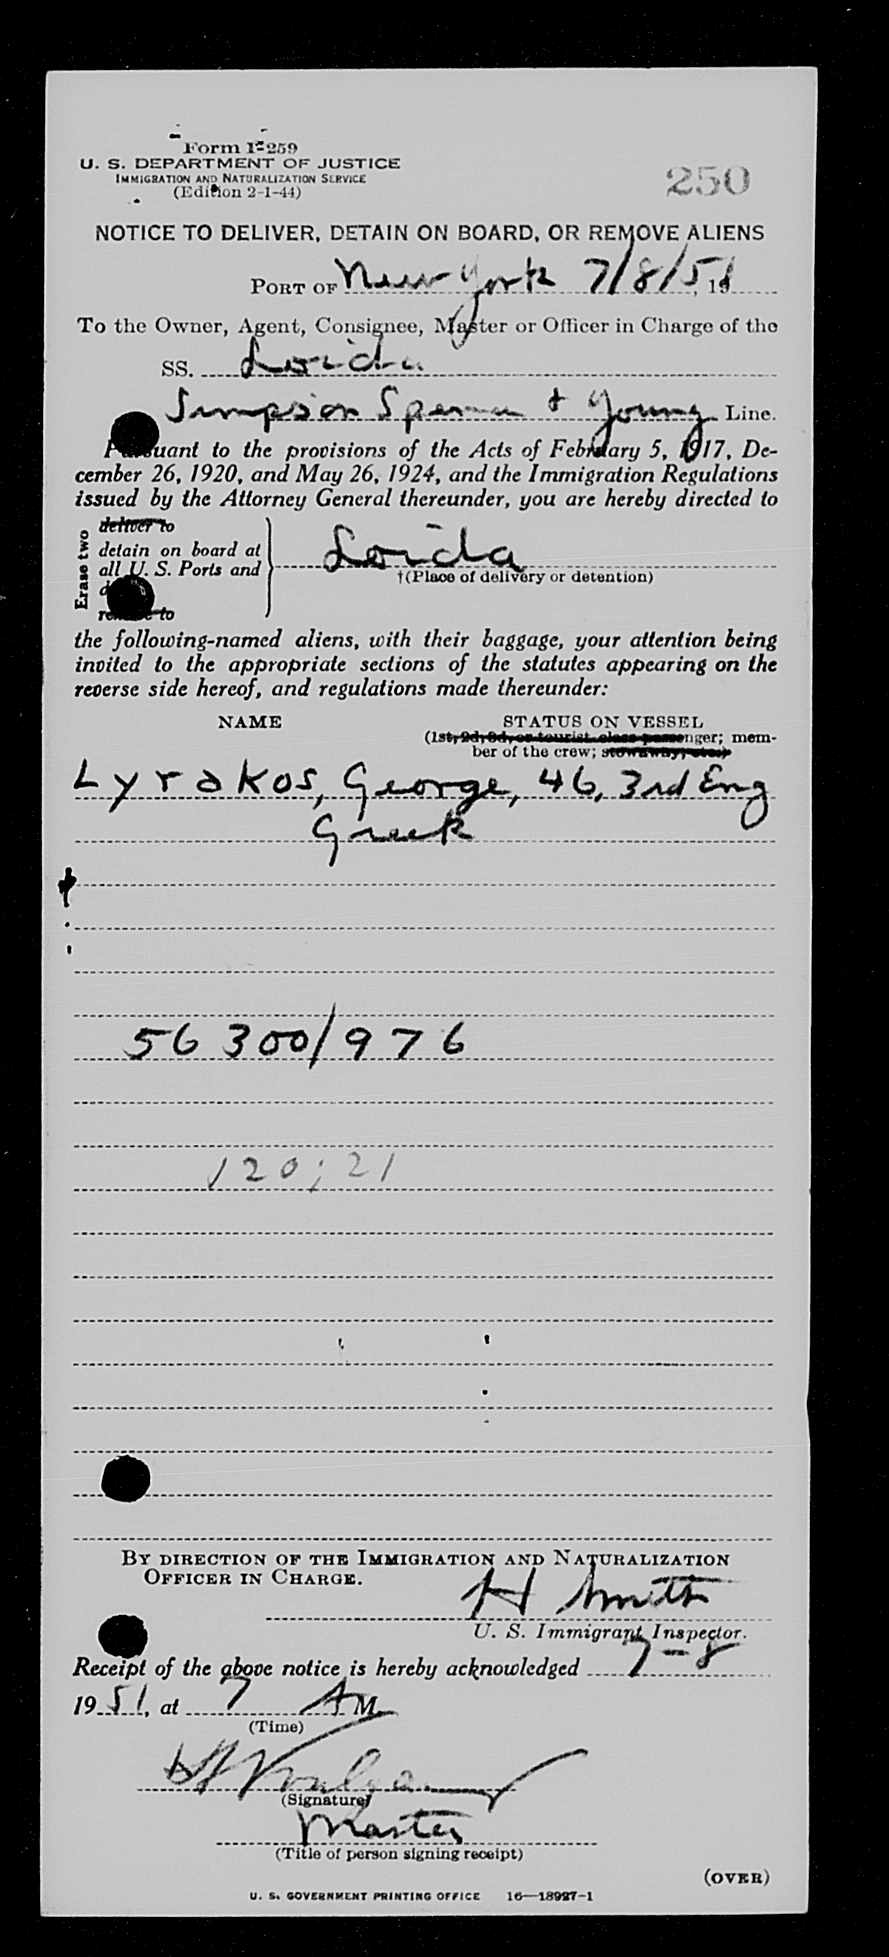 Form I-259
U. S. DEPARTMENT OF JUSTICE
IMMIGRATION AND NATURALIZATION SERVICE
(Edition 2-1-44)
250
NOTICE TO DELIVER, DETAIN ON BOARD, OR REMOVE ALIENS
PORT OF New York 7/8/51, 19
To the Owner, Agent, Consignee, Master or Officer in Charge of the
SS. Loida
Simpson Spence & Young Line.
Pursuant to the provisions of the Acts of February 5, 1917, De-
cember 26, 1920, and May 26, 1924, and the Immigration Regulations
issued by the Attorney General thereunder, you are hereby directed to
Erase two
deliver to
detain on board at
all U. S. Ports and
remove to
Loida
†(Place of delivery or detention)
the following-named aliens, with their baggage, your attention being
invited to the appropriate sections of the statutes appearing on the
reverse side hereof, and regulations made thereunder:
NAME STATUS ON VESSEL
(1st, 2d, 3d, or tourist class passenger; mem-
ber of the crew; stowaway, etc.)
Lyrakos, George, 46, 3rd Eng
Greek
56300/976
120; 21
BY DIRECTION OF THE IMMIGRATION AND NATURALIZATION
OFFICER IN CHARGE.
H Smith
U. S. Immigrant Inspector.
Receipt of the above notice is hereby acknowledged 7-8
1951, at 7 AM.
(Time)
(Signature)
Master
(Title of person signing receipt)
(OVER)
U. S. GOVERNMENT PRINTING OFFICE 16—18927-1